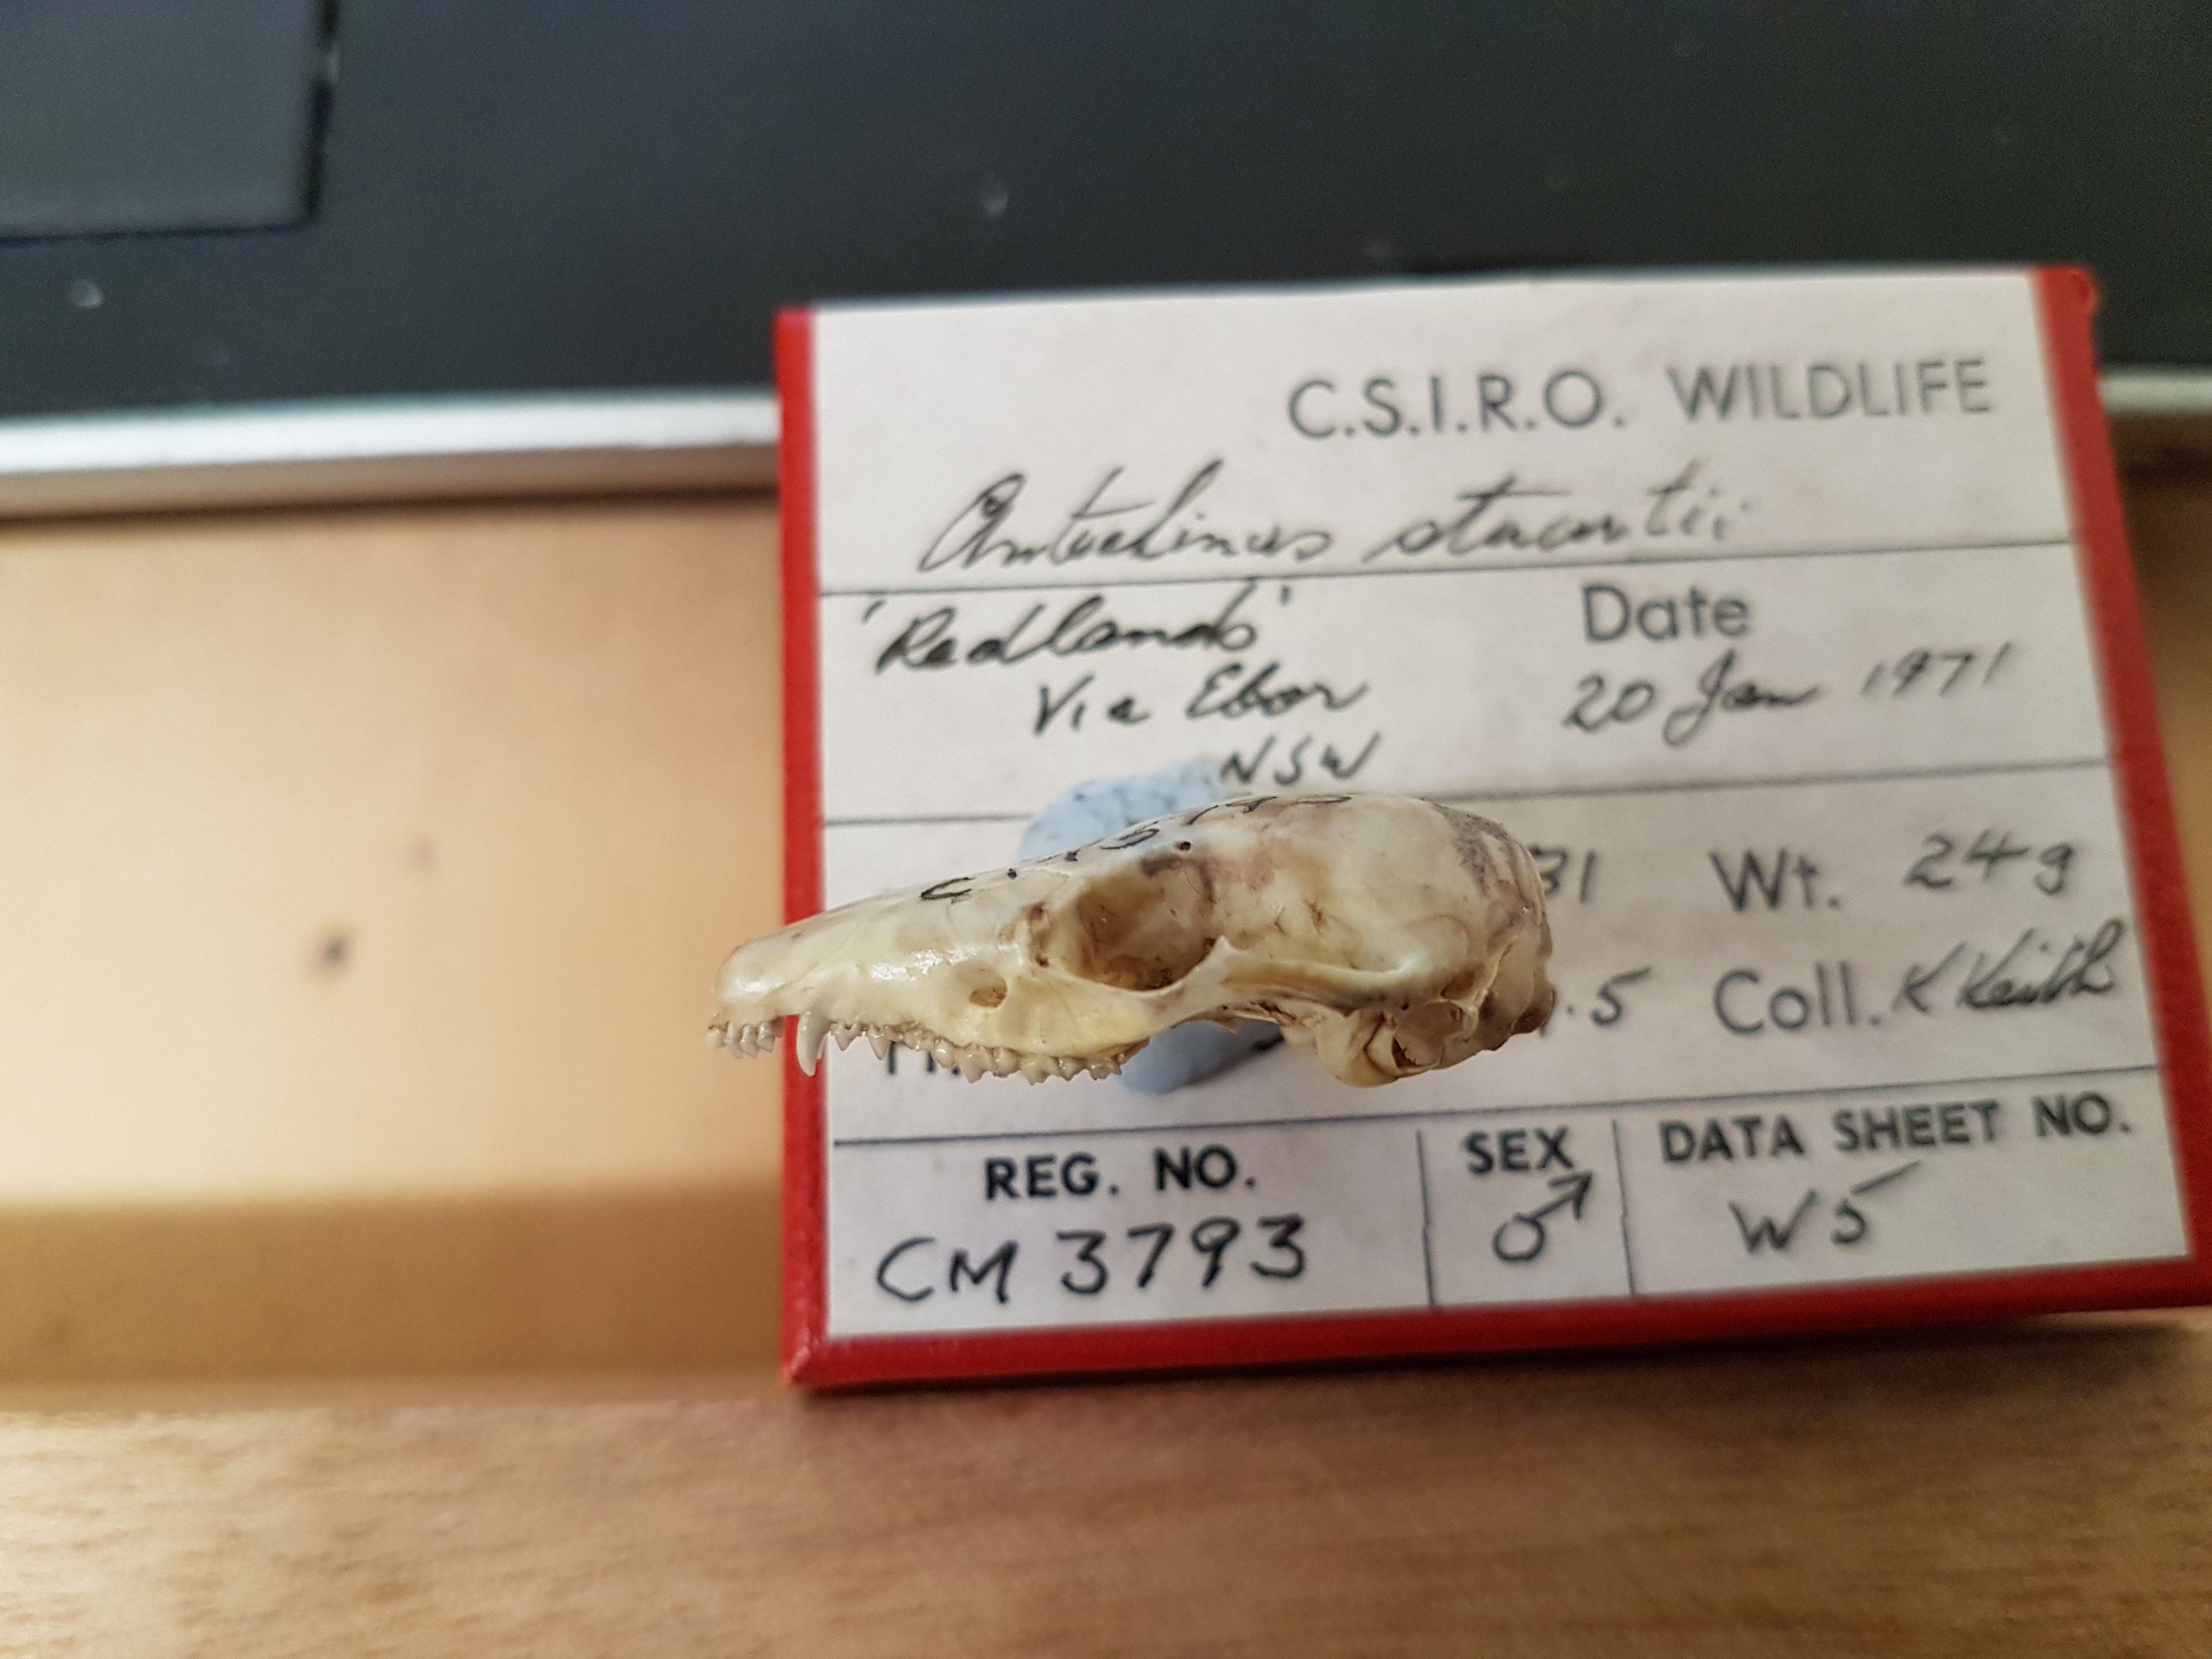 C.S.I.R.O. WILDLIFE
Antechinus stuartii
'Redlands'
Via Ebor
NSW
Date
20 Jan 1971
31 Wt. 24g
.5 Coll. K Keith
REG. NO.
CM 3793
SEX
♂
DATA SHEET NO.
W5